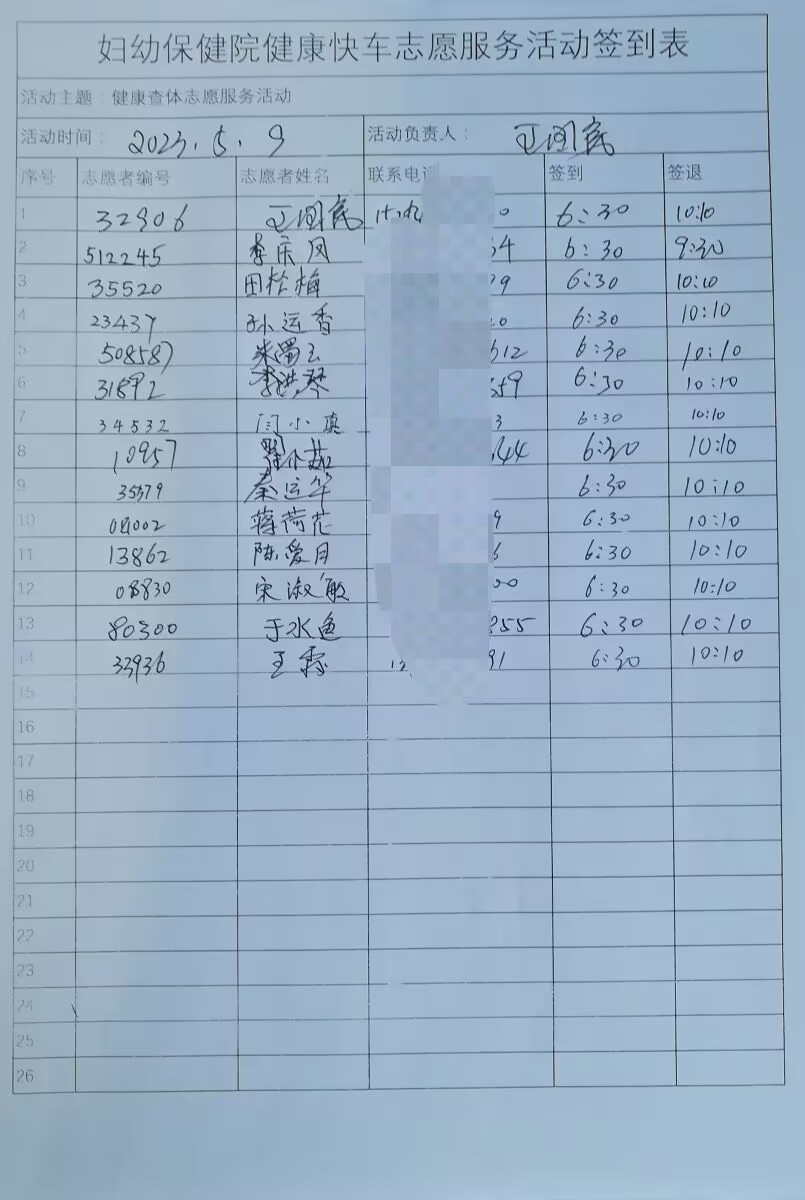 妇幼保健院健康快车志愿服务活动签到表
活动主题：健康查体志愿服务活动
活动时间： 2023.5.9 活动负责人： 王国宾
序号 志愿者编号 志愿者姓名 联系电话 签到 签退
1 32906 王国宾 0 6:30 10:10
2 512245 李庆风 54 6:30 9:30
3 35520 田桂梅 99 6:30 10:10
4 23437 孙运香 6:30 10:10
5 508587 612 6:30 10:10
6 31892 李洪琴 59 6:30 10:10
7 34532 闫小真 3 6:30 10:10
8 10957 44 6:30 10:10
9 35579 秦运华 6:30 10:10
10 蒋荷花 9 6:30 10:10
11 13862 陈爱月 6:30 10:10
12 08830 宋淑敏 00 6:30 10:10
13 80300 于水鱼 255 6:30 10:10
14 33936 王霖 91 6:30 10:10
15
16
17
18
19
20
21
22
23
24
25
26